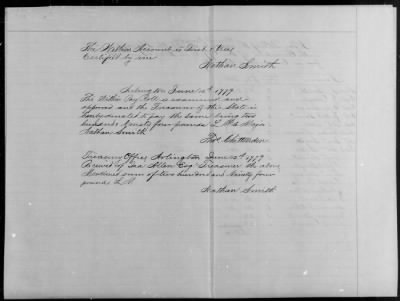 The Within Account is Just & True
Certified by me
Nathan Smith
Arlington June 12th 1779
The Within Pay Roll is examined and
approved and the Treasurer of this State is
directed to pay the same being two
hundred & ninety four pounds L. M. to Major
Nathan Smith
Thos Chittenden
Treasury Office, Arlington June 12th 1779
Receivd of Ira Allen Esqr Treasurer the above
Contents sum of two hundred and ninety four
pounds L. M.
Nathan Smith